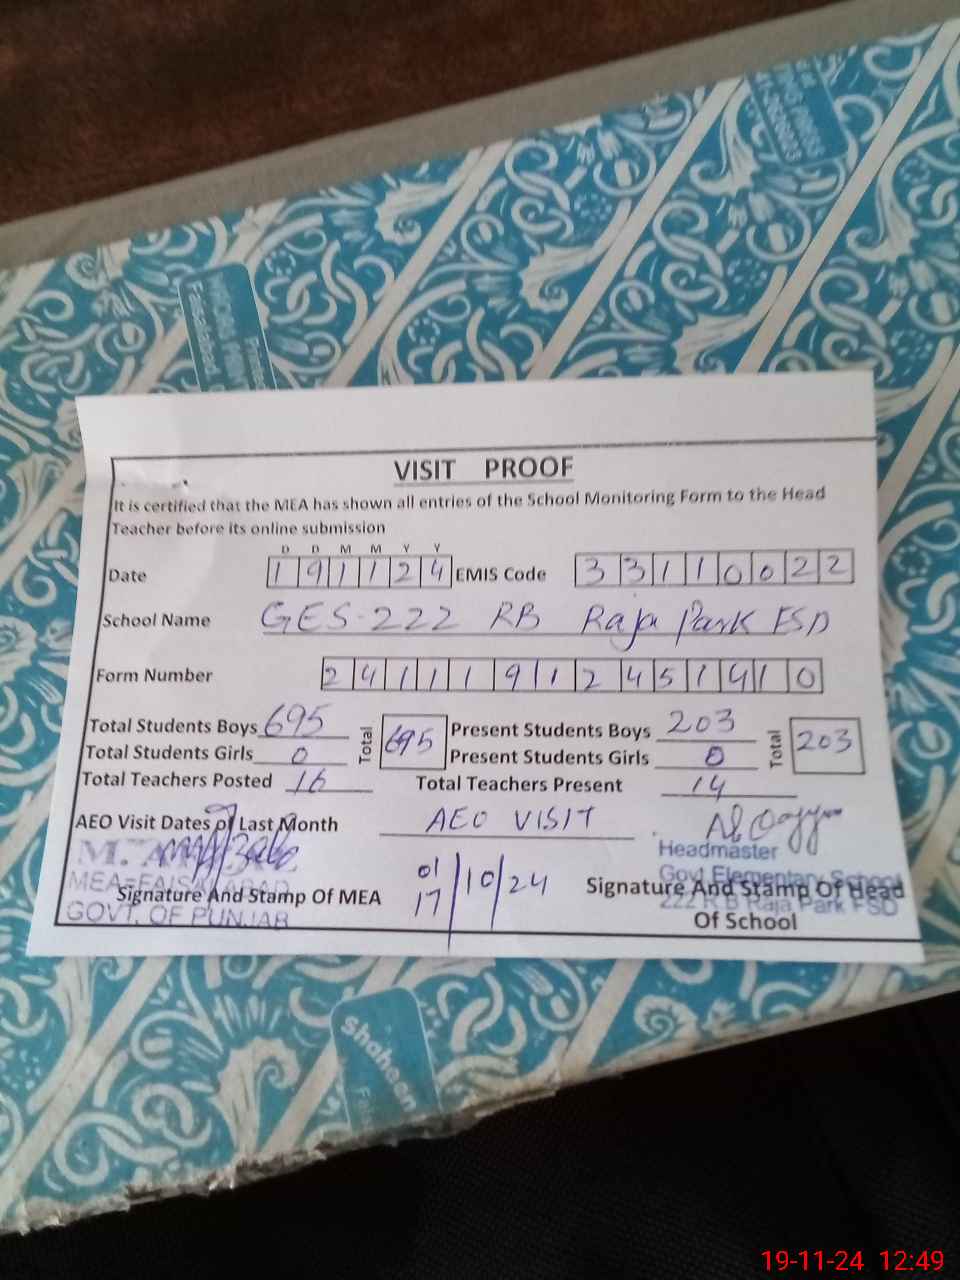 VISIT PROOF
It is certified that the MEA has shown all entries of the School Monitoring Form to the Head
Teacher before its online submission
D D M M Y Y
Date 191124 EMIS Code 33110022
School Name GES-222 RB Raja Park FSD
Form Number 24111912451410
Total Students Boys 695 Total 695 Present Students Boys 203 Total 203
Total Students Girls 0 Present Students Girls 0
Total Teachers Posted 16 Total Teachers Present 14
AEO Visit Dates of Last Month AEO VISIT
01
17 /10/24
MEA-FAISALABAD
GOVT. OF PUNJAB
Signature And Stamp Of MEA
Headmaster
Govt Elementary School
222 R B Raja Park FSD
Signature And Stamp Of Head
Of School
shaheen
19-11-24 12:49